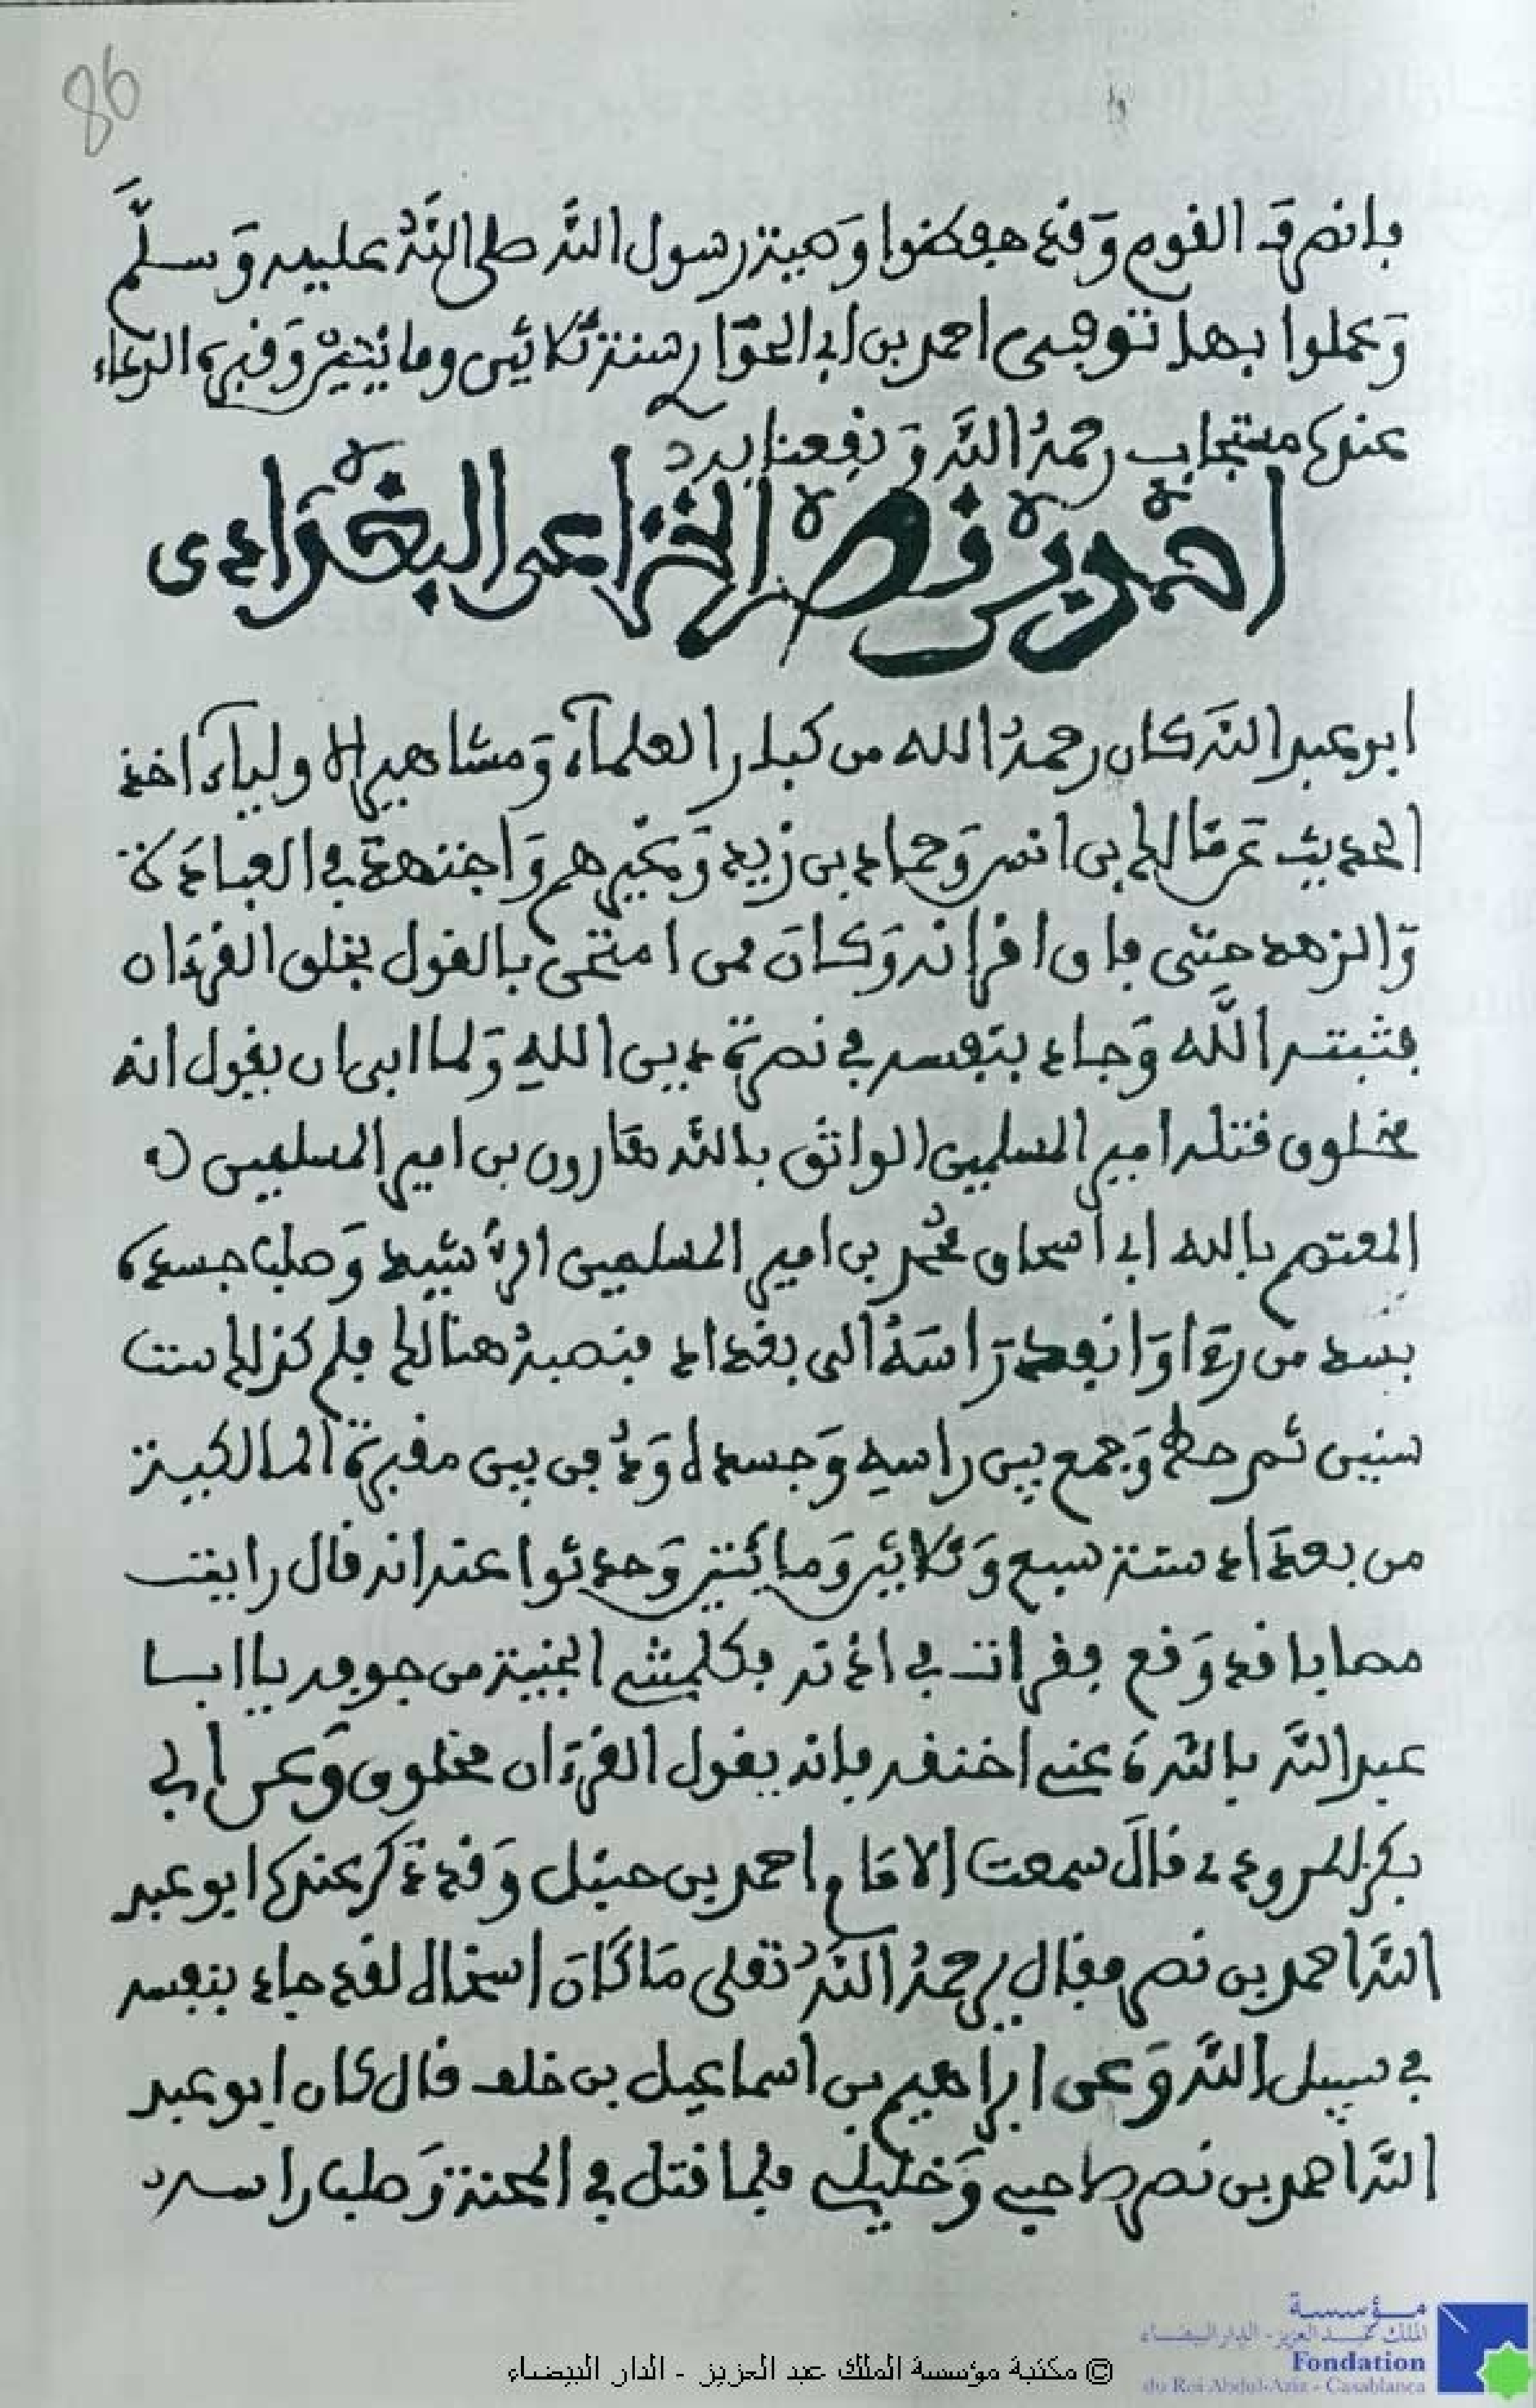 86
فانصرف القوم وقد حفظوا وصية رسول الله صلى الله عليه وسلم
وعملوا بها توفي احمد بن ابي الحوار سنة ثلاثين ومائتين وقبره الدعاء
عنده مستجاب رحمه الله ونفعنا به
احمد بن نصر الخزاعي البغدادي
ابو عبد الله كان رحمه الله من كبار العلماء ومشاهير الاولياء اخذ
الحديث عن مالك بن انس وحماد بن زيد وغيرهم واجتهد في العبادة
والزهد حتى فاق اقرانه وكان ممن امتحن بالقول بخلق القرءان
فثبته الله وجاد بنفسه في نصرة دين الله ولما ابى ان يقول انه
مخلوق قتله امير المسلمين الواثق بالله هارون بن امير المسلمين
المعتصم بالله ابي اسحاق محمد بن امير المسلمين الرشيد وصلب جسده
بسر من رءا وانفذ راسه الى بغداد فنصبه هنالك فلم كذلك ست
سنين ثم حط وجمع بين راسه وجسده ودفن بين مقبرة المالكية
من بغداد سنة سبع وثلاثين ومائتين وحدثوا عنه انه قال رايت
مصابا قد وقع فقرات في اذنه فكلمتني الجنية من جوفه يا ابا
عبد الله بالله دعني اخنقه فانه يقول القرءان مخلوق وعن ابي
بكر المروذي قال سمعت الامام احمد بن حنبل وقد ذكر عنده ابو عبد
الله احمد بن نصر فقال يرحمه الله تعلى ما كان اسخاه لقد جاد بنفسه
في سبيل الله وعن ابراهيم بن اسماعيل بن خلف قال كان ابو عبد
الله احمد بن نصر صاحبي وخليلي فلما قتل في المحنة وصلب راسه
© مكتبة مؤسسة الملك عبد العزيز - الدار البيضاء
مؤسسة
الملك عبد العزيز - الدار البيضاء
Fondation
du Roi Abdul-Aziz - Casablanca